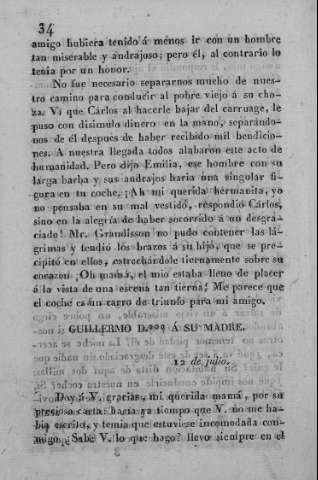 34
amigo hubiera tenido á ménos ir con un hombre
tan miserable y andrajoso; pero él, al contrario lo
tenia por un honor.
No fue necesario separarnos mucho de nues-
tro camino para conducir al pobre viejo á su cho-
za. Vi que Cárlos al hacerle bajar del carruage, le
puso con disimulo dinero en la mano, separándo-
nos de él despues de haber recibido mil bendicio-
nes. A nuestra llegada todos alabaron este acto de
humanidad. Pero dijo Emilia, ese hombre con su
larga barba y sus andrajos haria una singular fi-
gura en tu coche. ¡Ah mi querida hermanita, yo
no pensaba en su mal vestido, respondió Cárlos,
sino en la alegría de haber socorrido á un desgra-
ciado! Mr. Grandisson no pudo contener las lá-
grimas y tendió los brazos á su hijo, que se pre-
cipitó en ellos, estrechándole tiernamente sobre su
corazon ¡Oh mamá, el mio estaba lleno de placer
á la vista de una escena tan tierna! Me parece que
el coche es un carro de triunfo para mi amigo.
GUILLERMO D.*** Á SU MADRE.
12 de julio.
Doy á V. gracias, mi querida mamá, por su
presioso carta: hacia ya tiempo que V. no me ha-
bia escrito, y temia que estuviese incomodada con-
migo. ¿Sabe V. lo que hago? llevo siempre en el